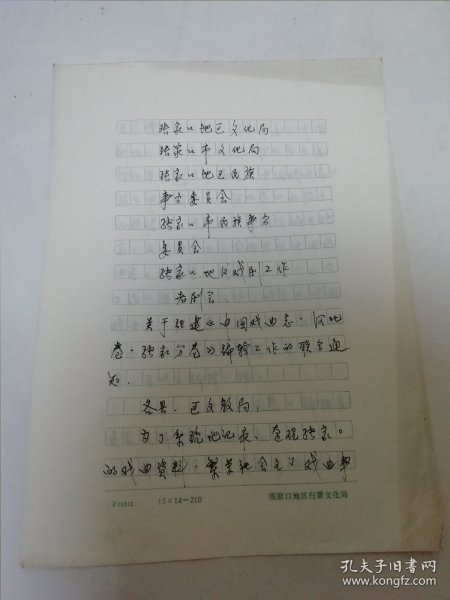 张家口地区文化局
张家口市文化局
张家口地区民族
事务委员会
张家口市民族事务
委员会
张家口地区戏剧工作
者剧会
关于组建《中国戏曲志·河北
卷·张家分卷》编辑工作的联合通
知.
各县、区文教局:
为了系统地记录、整理张家口
的戏曲资料,繁荣社会主义戏曲事
15×14=210
张家口地区行署文化局
孔夫子旧书网
www.kongfz.com